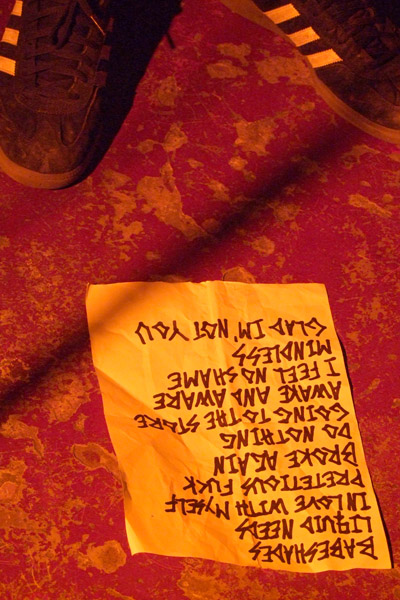 BABESHADES
LIQUID NEEDS
IN LOVE WITH MYSELF
PRETETIOUS FUCK
BROKE AGAIN
DO NOTHING
GOING TO THE STORE
AWAKE AND AWARE
I FEEL NO SHAME
MINDLESS
GLAD IM' NOT YOU